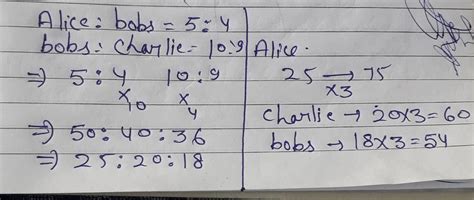 Alice : bobs = 5:4
bobs : Charlie = 10:9
⇒ 5:4 10:9
x10 x4
⇒ 50:40:36
⇒ 25:20:18
Alice.
25 → 75
x3
Charlie → 20x3=60
bobs → 18x3=54